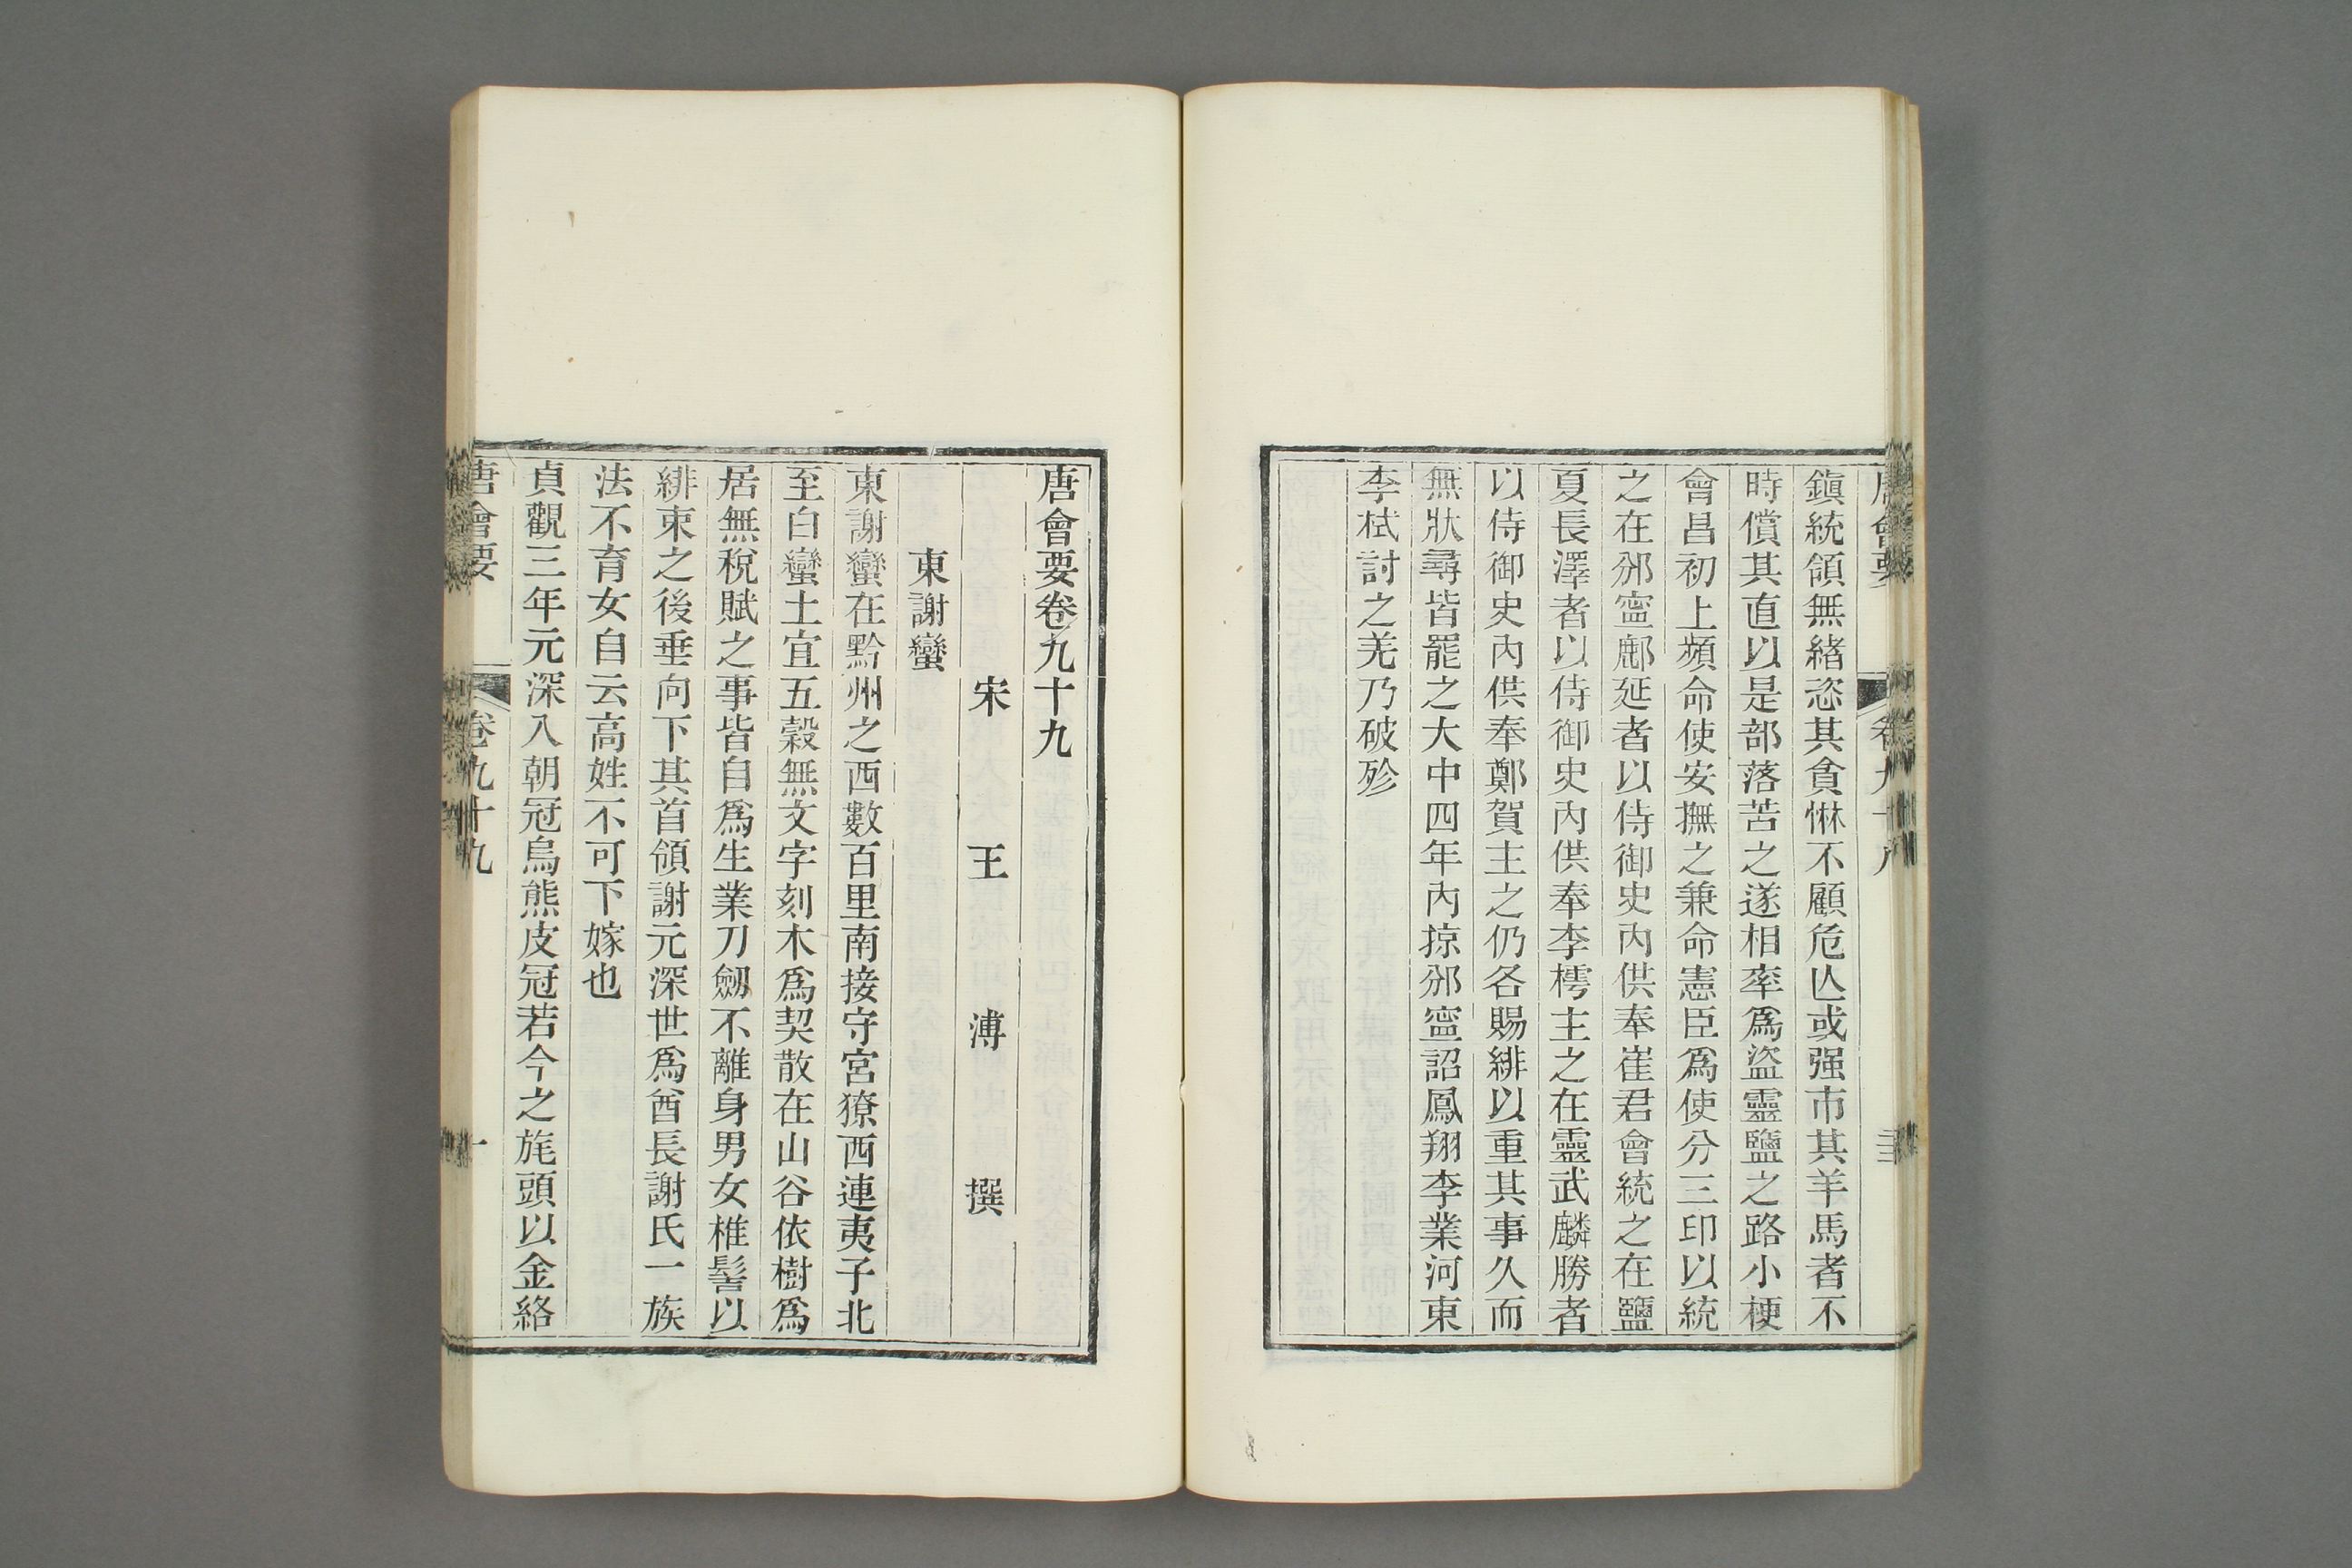 唐會要
卷九十八
鎭統領無緒恣其貪惏不顧危亾或强市其羊馬者不
時償其直以是部落苦之遂相率爲盜靈鹽之路小梗
會昌初上頻命使安撫之兼命憲臣爲使分三印以統
之在邠寧鄜延者以侍御史內供奉崔君會統之在鹽
夏長澤者以侍御史內供奉李樗主之在靈武麟勝者
以侍御史內供奉鄭賀主之仍各賜緋以重其事久而
無狀尋皆罷之大中四年內掠邠寧詔鳳翔李業河東
李栻討之羌乃破殄
唐會要卷九十九
宋 王 溥 撰
東謝蠻
東謝蠻在黔州之西數百里南接守宮獠西連夷子北
至白蠻土宜五穀無文字刻木爲契散在山谷依樹爲
居無稅賦之事皆自爲生業刀劒不離身男女椎髻以
緋束之後垂向下其首領謝元深世爲酋長謝氏一族
法不育女自云高姓不可下嫁也
貞觀三年元深入朝冠烏熊皮冠若今之旄頭以金絡
唐會要
卷九十九
一